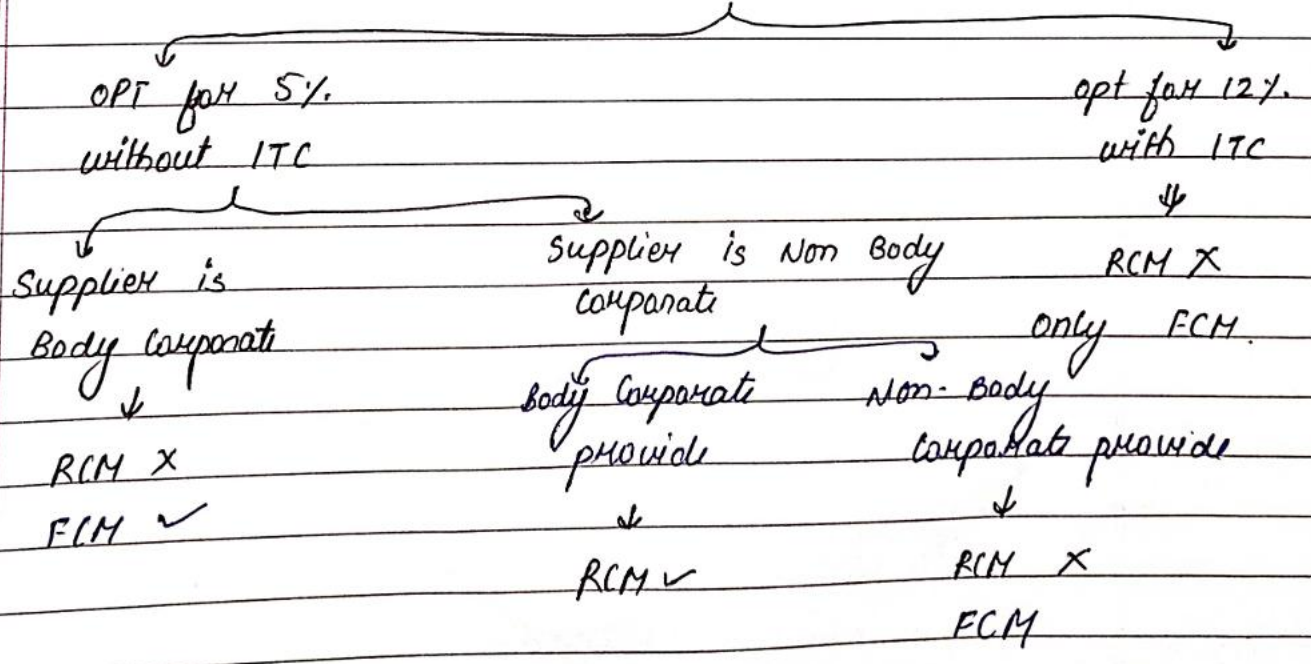 OPT for 5%.
without ITC
opt for 12%.
with ITC
Supplier is
Body Corporate
Supplier is Non Body
Corporate
RCM X
only FCM.
RCM X
FCM ✓
Body Corporate
provide
RCM ✓
Non-Body
Corporate provide
RCM X
FCM